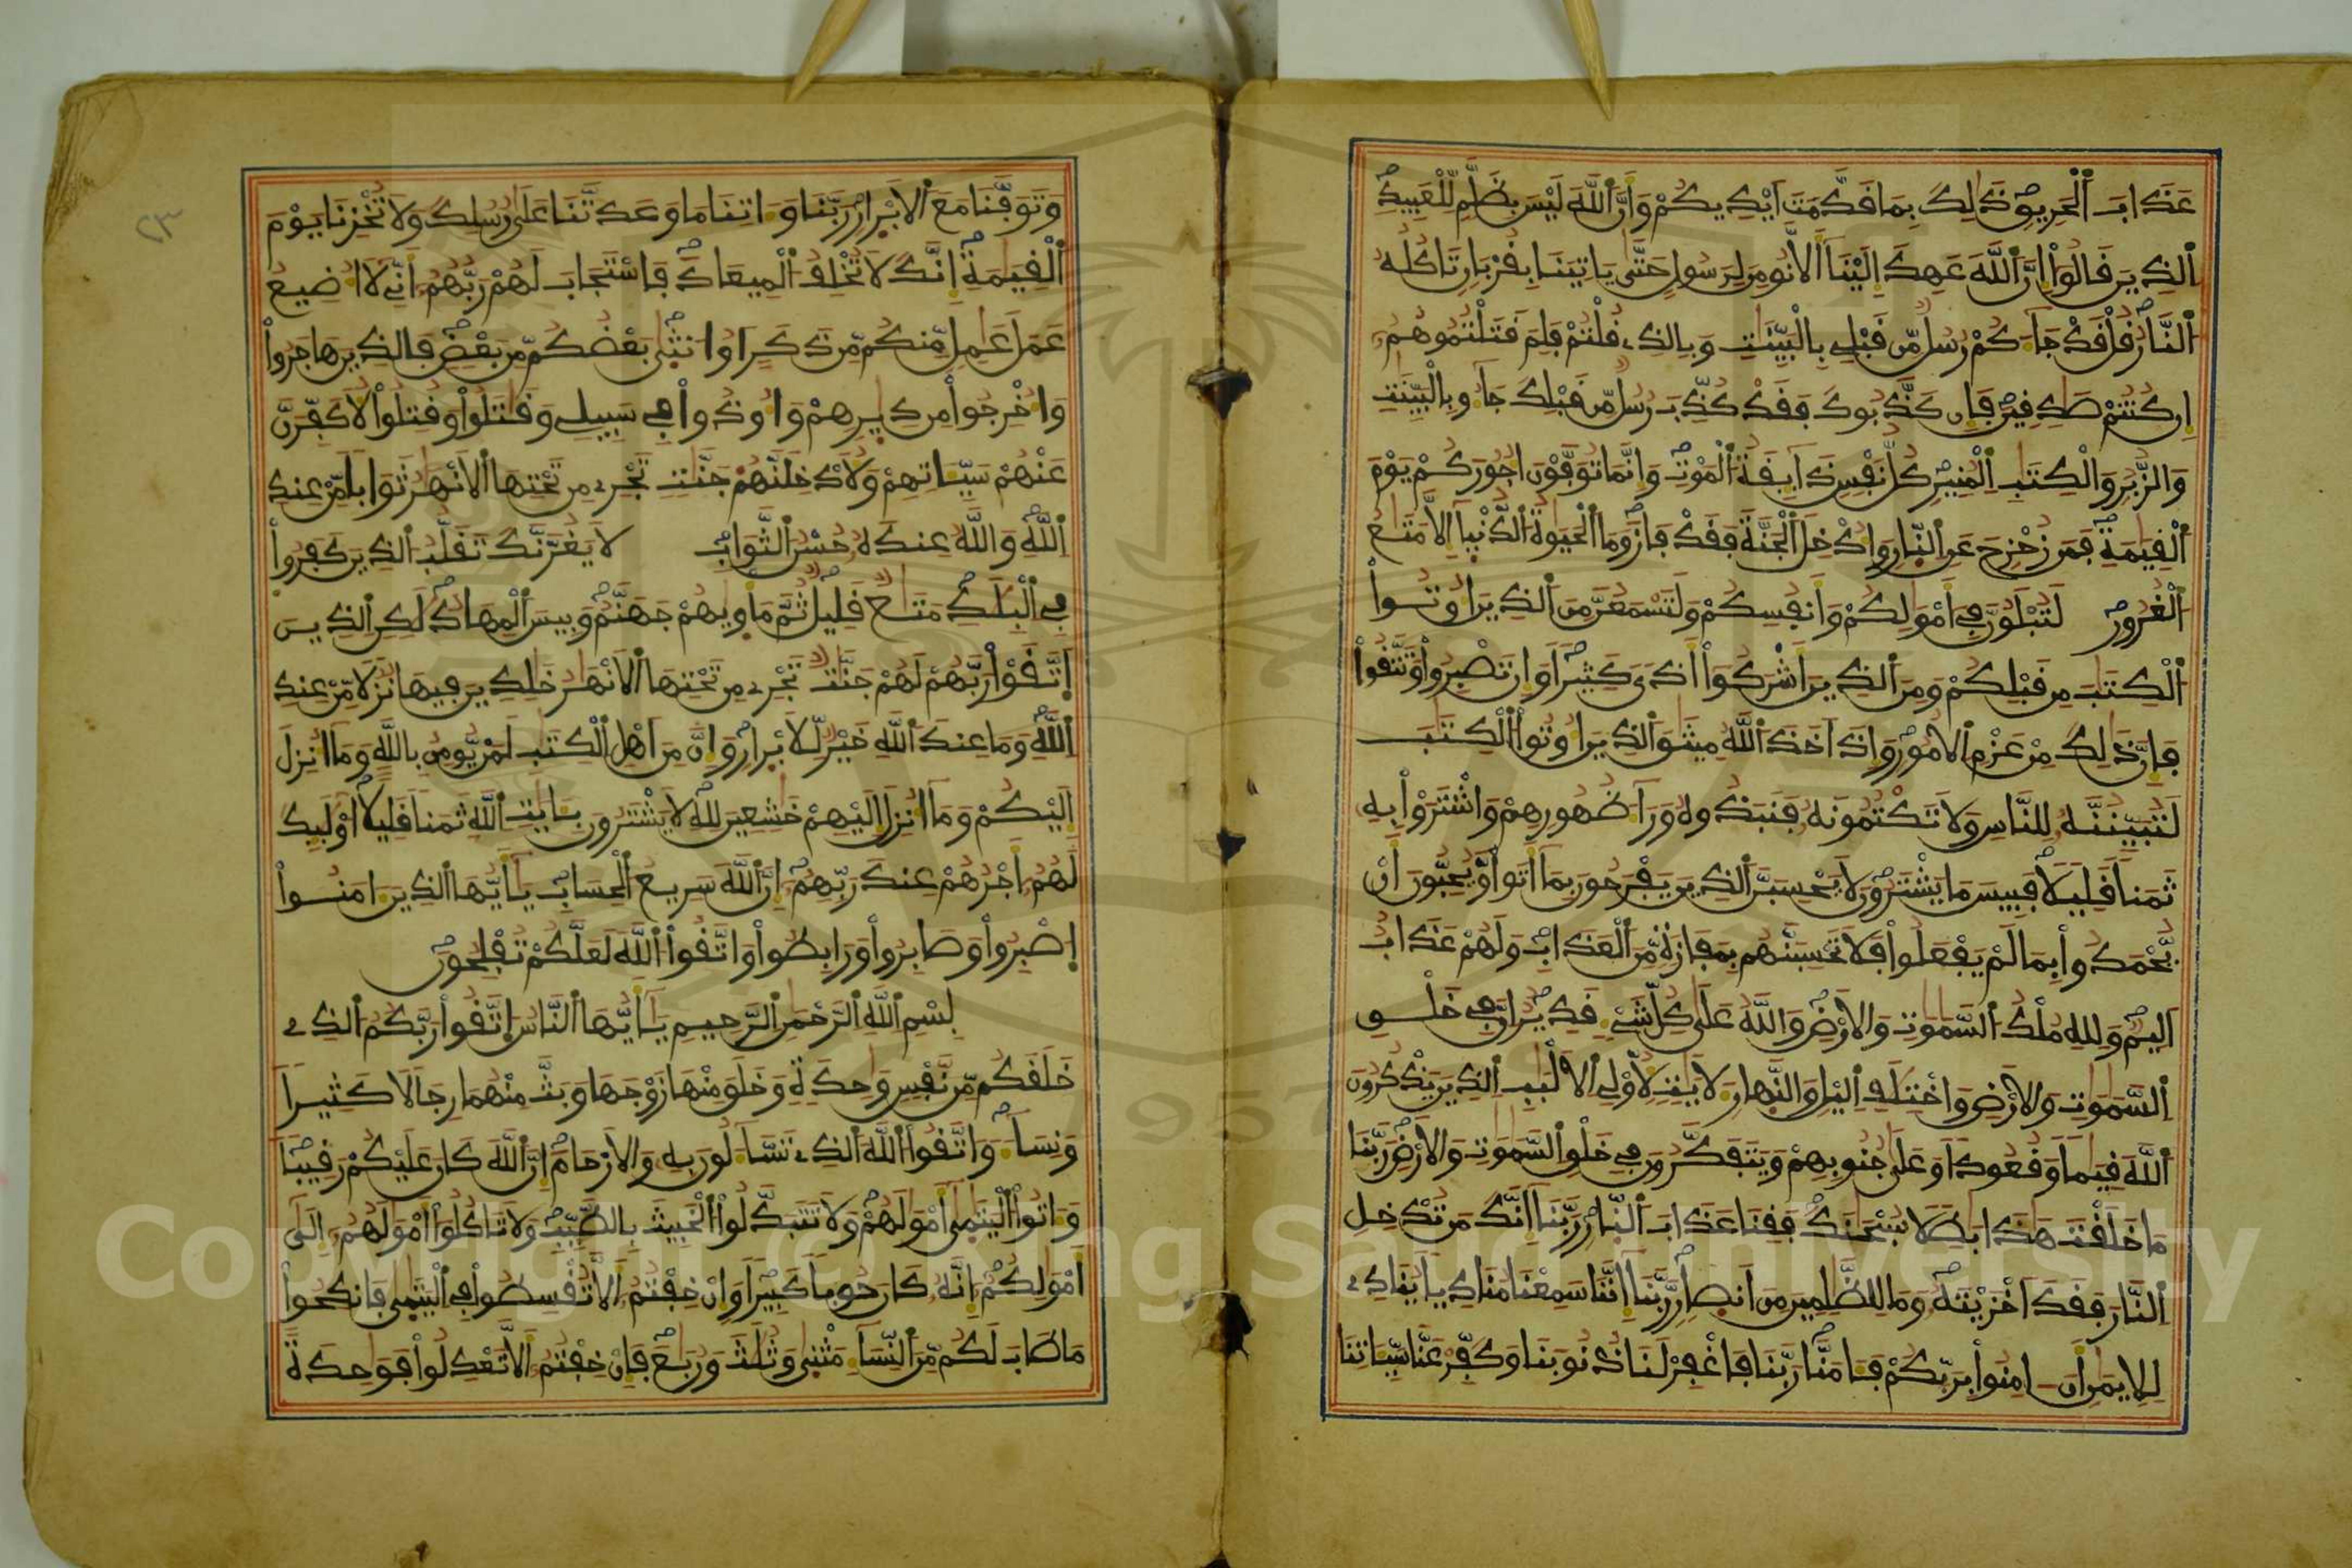 عَذَابَ ٱلْحَرِيقِ ذَٰلِكَ بِمَا قَدَّمَتَ ايْدِيكُمْ وَأَنَّ ٱللَّهَ لَيْسَ بِظَلَّٰمٍ لِّلْعَبِيدِ
ٱلذِينَ قَالُوٓاْ إِنَّ ٱللَّهَ عَهِدَ إِلَيْنَآ أَلَّا نُومِنَ لِرَسُولٍ حَتَّىٰ يَاتِيَنَا بِقُرْبَانٍ تَاكُلُهُ
ٱلنَّارُ قُلْ قَدْ جَآءَكُمْ رُسُلٌ مِّن قَبْلِے بِالْبَيِّنَٰتِ وَبِالذِے قُلْتُمْ فَلِمَ قَتَلْتُمُوهُمُۥٓ
إِن كُنتُمْ صَٰدِقِينَ فَإِن كَذَّبُوكَ فَقَدْ كُذِّبَ رُسُلٌ مِّن قَبْلِكَ جَآءُو بِالْبَيِّنَٰتِ
وَالزُّبُرِ وَالْكِتَٰبِ اِلْمُنِيرِ كُلُّ نَفْسٍ ذَآئِقَةُ اُلْمَوْتِ وَإِنَّمَا تُوَفَّوْنَ أُجُورَكُمْ يَوْمَ
ٱلْقِيَٰمَةِ فَمَن زُحْزِحَ عَنِ اِلنّ۪ارِ وَأُدْخِلَ اَلْجَنَّةَ فَقَدْ فَازَ وَمَا اَلْحَيَوٰةُ اُلدُّنْي۪آ إِلَّا مَتَٰعُ
اُلْغُرُورِ لَتُبْلَوُنَّ فِےٓ أَمْوَٰلِكُمْ وَأَنفُسِكُمْ وَلَتَسْمَعُنَّ مِنَ اَلذِينَ أُوتُواْ
اُلْكِتَٰبَ مِن قَبْلِكُمْ وَمِنَ اَلذِينَ أَشْرَكُوٓاْ أَذىً كَثِيراً وَإِن تَصْبِرُواْ وَتَتَّقُواْ
فَإِنَّ ذَٰلِكَ مِنْ عَزْمِ اِلْأُمُورِ وَإِذَ اَخَذَ اَللَّهُ مِيثَٰقَ اَلذِينَ أُوتُواْ اُلْكِتَٰبَ
لَتُبَيِّنُنَّهُۥ لِلنَّاسِ وَلَا تَكْتُمُونَهُۥ فَنَبَذُوهُ وَرَآءَ ظُهُورِهِمْ وَاشْتَرَوْاْ بِهِۦ
ثَمَناً قَلِيلاً فَبِيسَ مَا يَشْتَرُونَ لَا يَحْسِبَنَّ اَلذِينَ يَفْرَحُونَ بِمَآ أَتَواْ وَّيُحِبُّونَ أَنْ
يُّحْمَدُواْ بِمَا لَمْ يَفْعَلُواْ فَلَا تَحْسِبَنَّهُم بِمَفَازَةٍ مِّنَ اَلْعَذَابِ وَلَهُمْ عَذَابٌ
اَلِيمٌ وَلِلهِ مُلْكُ اُلسَّمَٰوَٰتِ وَالْأَرْضِ وَاللَّهُ عَلَىٰ كُلِّ شَےْءٍ قَدِيرٌ اِنَّ فِے خَلْقِ
اِلسَّمَٰوَٰتِ وَالْأَرْضِ وَاخْتِلَٰفِ اِليْلِ وَالنَّه۪ارِ لَأٓيَٰتٍ لِّأُوْلِے اِلْأَلْبَٰبِ اِلذِينَ يَذْكُرُونَ
اَللَّهَ قِيَٰماً وَقُعُوداً وَعَلَىٰ جُنُوبِهِمْ وَيَتَفَكَّرُونَ فِے خَلْقِ اِلسَّمَٰوَٰتِ وَالْأَرْضِ رَبَّنَا
مَا خَلَقْتَ هَٰذَا بَٰطِلاً سُبْحَٰنَكَ فَقِنَا عَذَابَ اَلنّ۪ارِ رَبَّنَآ إِنَّكَ مَن تُدْخِلِ
اِلنَّارَ فَقَدَ اَخْزَيْتَهُۥ وَمَا لِلظَّٰلِمِينَ مِنَ اَنص۪ارٍ رَّبَّنَآ إِنَّنَا سَمِعْنَا مُنَادِياً يُنَادِے
لِلِايمَٰنِ أَنَ اٰمِنُواْ بِرَبِّكُمْ فَـَٔامَنَّا رَبَّنَا فَاغْفِرْ لَنَا ذُنُوبَنَا وَكَفِّرْ عَنَّا سَيِّـَٔاتِنَا
وَتَوَفَّنَا مَعَ اَلْأَبْر۪ارِ رَبَّنَا وَءَاتِنَا مَا وَعَدتَّنَا عَلَىٰ رُسُلِكَ وَلَا تُخْزِنَا يَوْمَ
اَلْقِيَٰمَةِ إِنَّكَ لَا تُخْلِفُ اُلْمِيعَادَ فَاسْتَجَابَ لَهُمْ رَبُّهُمُۥٓ أَنِّے لَآ أُضِيعُ
عَمَلَ عَٰمِلٍ مِّنكُم مِّن ذَكَرٍ اَوُ ا۟نث۪ىٰ بَعْضُكُم مِّنۢ بَعْضٍ فَالذِينَ هَاجَرُواْ
وَأُخْرِجُواْ مِن دِيٰ۪رِهِمْ وَأُوذُواْ فِے سَبِيلِے وَقَٰتَلُواْ وَقُتِلُواْ لَأُكَفِّرَنَّ
عَنْهُمْ سَيِّـَٔاتِهِمْ وَلَأُدْخِلَنَّهُمْ جَنَّٰتٍ تَجْرِے مِن تَحْتِهَا اَلْأَنْهَٰرُ ثَوَاباً مِّنْ عِندِ
اِللَّهِ وَاللَّهُ عِندَهُۥ حُسْنُ اُلثَّوَابِ لَا يَغُرَّنَّكَ تَقَلُّبُ اُلذِينَ كَفَرُواْ
فِے اِلْبِلَٰدِ مَتَٰعٌ قَلِيلٌ ثُمَّ مَأْو۪يٰهُمْ جَهَنَّمُ وَبِيسَ اَلْمِهَادُ لَٰكِنِ اِلذِينَ
اَتَّقَوْاْ رَبَّهُمْ لَهُمْ جَنَّٰتٌ تَجْرِے مِن تَحْتِهَا اَلْأَنْهَٰرُ خَٰلِدِينَ فِيهَا نُزُلاً مِّنْ عِندِ
اِللَّهِ وَمَا عِندَ اَللَّهِ خَيْرٌ لِّلْأَبْر۪ارِ وَإِنَّ مِنَ اَهْلِ اِلْكِتَٰبِ لَمَنْ يُّومِنُ بِاللَّهِ وَمَآ أُنزِلَ
إِلَيْكُمْ وَمَآ أُنزِلَ إِلَيْهِمْ خَٰشِعِينَ لِلهِ لَا يَشْتَرُونَ بِـَٔايَٰتِ اِللَّهِ ثَمَناً قَلِيلاً اُوْلَٰٓئِكَ
لَهُمُۥٓ أَجْرُهُمْ عِندَ رَبِّهِمُۥٓ إِنَّ اَللَّهَ سَرِيعُ اُلْحِسَابِ يَٰٓأَيُّهَا اَلذِينَ ءَامَنُواْ
اَصْبِرُواْ وَصَابِرُواْ وَرَابِطُواْ وَاتَّقُواْ اُللَّهَ لَعَلَّكُمْ تُفْلِحُونَ
بِسْمِ اِللَّهِ اِلرَّحْمَٰنِ اِلرَّحِيمِ يَٰٓأَيُّهَا اَلنَّاسُ اُتَّقُواْ رَبَّكُمُ اُلذِے
خَلَقَكُم مِّن نَّفْسٍ وَٰحِدَةٍ وَخَلَقَ مِنْهَا زَوْجَهَا وَبَثَّ مِنْهُمَا رِجَالاً كَثِيراً
وَنِسَآءً وَاتَّقُواْ اُللَّهَ اَلذِے تَسَّآءَلُونَ بِهِۦ وَالْأَرْحَامَ إِنَّ اَللَّهَ كَانَ عَلَيْكُمْ رَقِيباً
وَءَاتُواْ اُلْيَتَٰم۪ىٰٓ أَمْوَٰلَهُمْ وَلَا تَتَبَدَّلُواْ اُلْخَبِيثَ بِالطَّيِّبِ وَلَا تَاكُلُوٓاْ أَمْوَٰلَهُمُۥٓ إِلَىٰٓ
أَمْوَٰلِكُمُۥٓ إِنَّهُۥ كَانَ حُوباً كَبِيراً وَإِنْ خِفْتُمُۥٓ أَلَّا تُقْسِطُواْ فِے اِلْيَتَٰم۪ىٰ فَانكِحُواْ
مَا طَابَ لَكُم مِّنَ اَلنِّسَآءِ مَثْن۪ىٰ وَثُلَٰثَ وَرُبَٰعَ فَإِنْ خِفْتُمُۥٓ أَلَّا تَعْدِلُواْ فَوَٰحِدَةً
٢٣
Copyright © King Saud University
1957